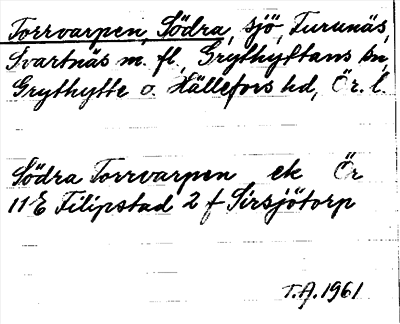 Torrvarpen, Södra, sjö, Turunäs,
Svartnäs m. fl., Grythyttans sn,
Grythytte o. Hällefors hd, Ör. l.
Södra Torrvarpen ek Ör
11 E Filipstad 2 f Sirsjötorp
T.A. 1961